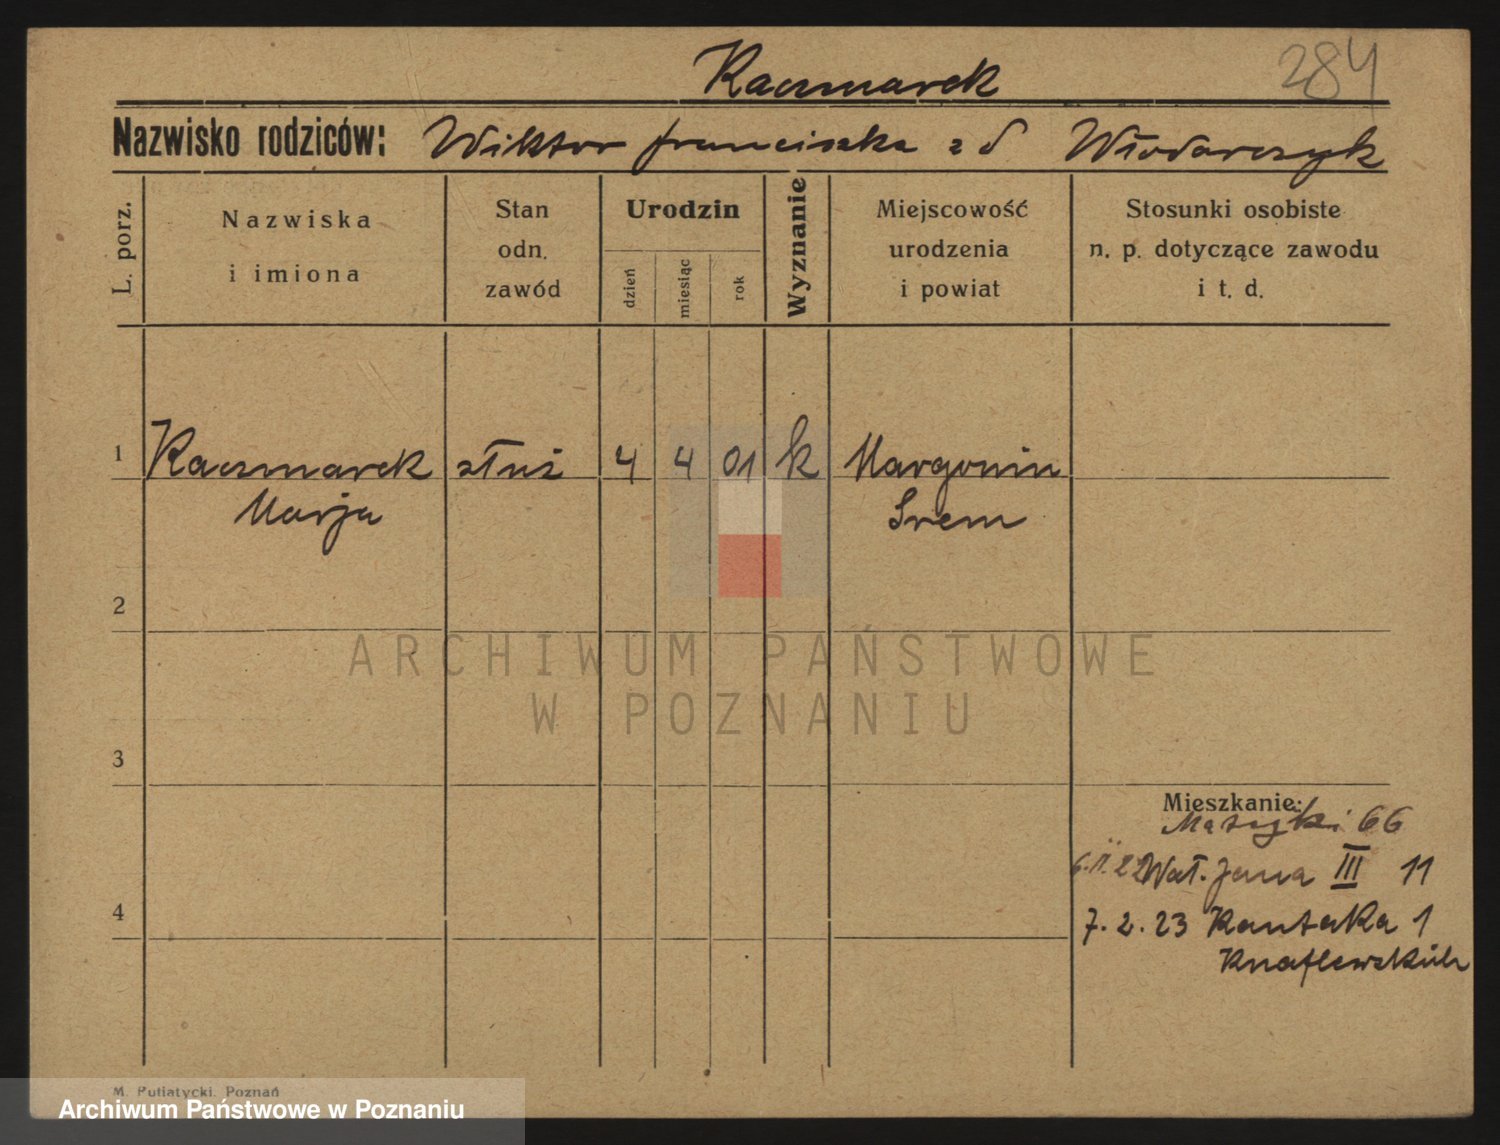 284
Kaczmarek
Nazwisko rodziców: Wiktor Franciszka z d Włodarczyk
L. porz.
Nazwiska i imiona
Stan odn. zawód
Urodzin
dzień
miesiąc
rok
Wyznanie
Miejscowość urodzenia i powiat
Stosunki osobiste n. p. dotyczące zawodu i t. d.
1 Kaczmarek służ 4 4 01 k Margonin
Marja Srem
2
ARCHIWUM PAŃSTWOWE
W POZNANIU
3
Mieszkanie:
66
6.11.22 Wał. Jana III 11
4
7.2.23 Kantaka 1
M. Putiatycki. Poznań
Archiwum Państwowe w Poznaniu